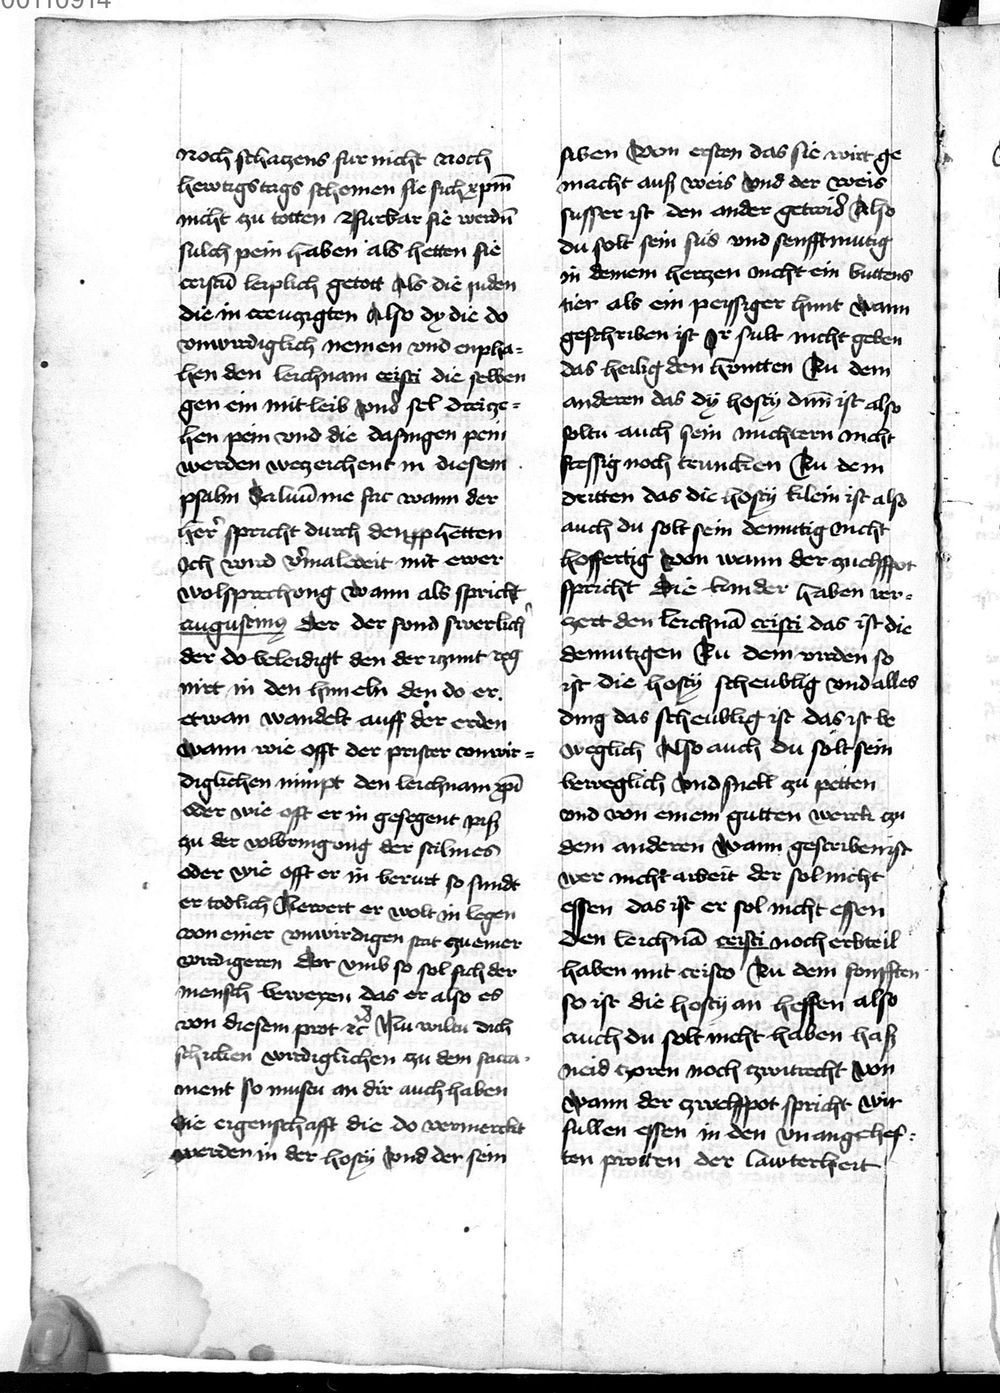 00110914
noch schaczens fur nicht noch
hewtigs tags schemen sie sich xpm̄
nicht zu totten Furbar sie werdn̄
sulch pein haben als hetten sie
cristū leiplich getott Als die juden
die in creuczigten Also dy die do
vnwirdiglich nemen vnd enpha=
hen den leichnam cristi die selben
gen ein mit leib vnd sel dreize=
hen pein vnd die dasingen pein
werden wezeichent in diesem
psalm Saluū me fac wann der
her spricht durch den ppheten
Ich wird v̄maledeit mit ewer
wolsprechong wann als spricht
augustinus Der der sond swerlich
der do beleidigt den der iczunt reg
nirt in den himeln den do er
etwan wandelt auff der erden
Wann wie offt der prister vnwir=
diglichen nimpt den leichnam xpī
oder wie offt er in gesegent piß
zu der volbringong der stilmes
oder wie offt er in berurt so sundt
er todlich Newert er wolt in legen
von einer vnwirdigen stat zu einer
wirdigeren Dor vmb so sol sich der
mensch bewegen das er also es
von diesem prot ꝛc Nu wiltu dich
schicken wirdiglichen zu dem sacra=
ment so mustu an dir auch haben
die eigenschafft die do vermerckt
werden in der hosty vnd der sein
siben Von ersten das sie wirt ge
macht auß weis vnd der weis
susser ist den ander getreid Also
du solt sein sus vnd senfftmutig
in deinem herczen nicht ein buttens
tier als ein peissiger hunt wann
geschriben ist Ir sult nicht geben
das heilig den hontten Zu dem
anderen das dy hosty dun̄ ist also
soltu auch sein nuchtern nicht
fressig noch truncken Zu dem
dritten das die hosty klein ist also
auch du solt sein demutig nicht
hoffertig Von wann der zwelffpot
spricht Die kinder haben ver=
zert den leichnā cristi das ist die
demutigen Zu dem virden so
ist die hosty scheublig vnd alles
ding das scheublig ist das ist be
weglich Also auch du solt sein
beweglich vnd snell zu petten
vnd von einem gutten werck czu
dem anderen Wann gescriben ist
wer nicht arbeit der sol nicht
essen das ist er sol nicht essen
den leichnā cristi noch erbteil
haben mit cristo Zu dem fonfften
so ist die hosty an heffen also
auch du solt nicht haben haß
neid czoren noch czwitrecht Von
wann der zwelffpot spricht wir
sullen essen in den vnangehef=
ten protten der lawterheit